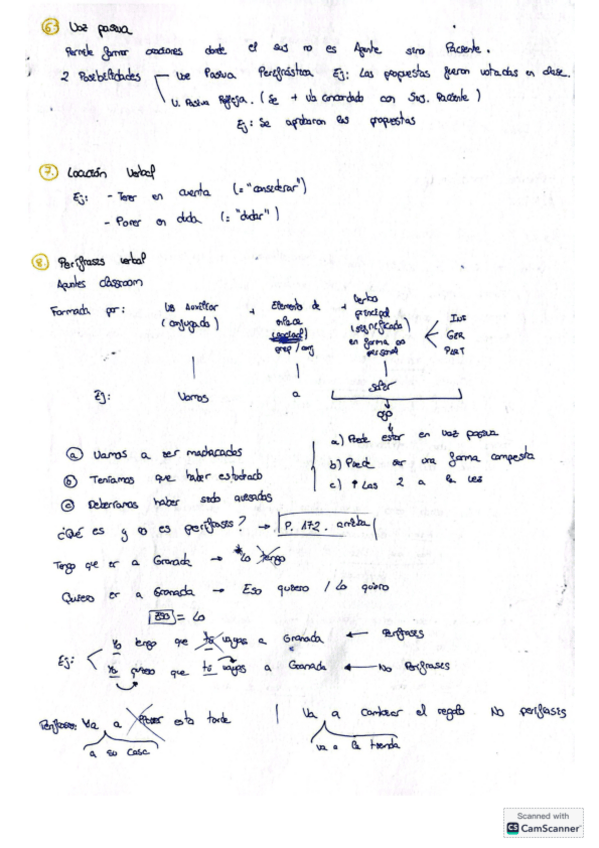 6. Voz pasiva
Permite formar oraciones donde el suj no es Agente sino Paciente.
2 Posibilidades
Voz Pasiva Perifrástica Ej: Las propuestas fueron votadas en clase.
V. Pasiva Refleja. (Se + Vb concordado con Suj. Paciente)
Ej: Se aprobaron las propuestas
7. Locución verbal
Ej: - Tener en cuenta (= "considerar")
- Poner en duda (= "dudar")
8. Perífrasis verbal
Apuntes classroom
Formada por: Vb Auxiliar (conjugado) + Elemento de enlace prep / conj + Verbo principal (significado) en forma no personal
INF
GER
PART
Ej: Vamos a salir
ojo
a) Puede estar en voz pasiva
b) Puede ser una forma compuesta
c) ↑ Las 2 a la vez
a Vamos a ser machacados
b Teníamos que haber estudiado
c Deberíamos haber sido avisados
¿Qué es y no es perífrasis? → P. 172. arriba
Tengo que ir a Granada → * Lo tengo
Quiero ir a Granada → Eso quiero / Lo quiero
ESO = Lo
Ej:
Yo tengo que tú vayas a Granada ← Perífrasis
Yo quiero que tú vayas a Granada ← No Perífrasis
Perífrasis: Va a llover esta tarde
a su casa
Va a cambiar el regalo No perífrasis
va a la tienda
Scanned with
CS CamScanner